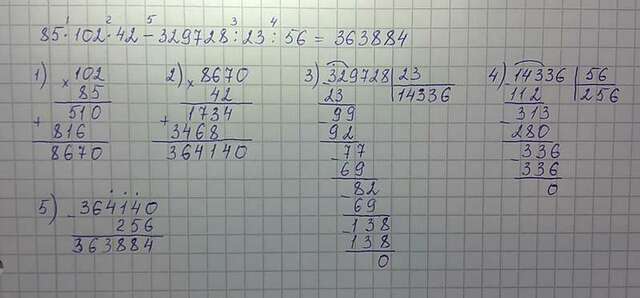 1 2 5 3 4
85·102·42-329728:23:56=363884
1) ×102
85
+510
816
8670
2) ×8670
42
+1734
3468
364140
3) -329728 | 23
23 | 14336
-99
92
-77
69
-82
69
-138
138
0
4) -14336 | 56
112 | 256
-313
280
-336
336
0
5) -364140
256
363884